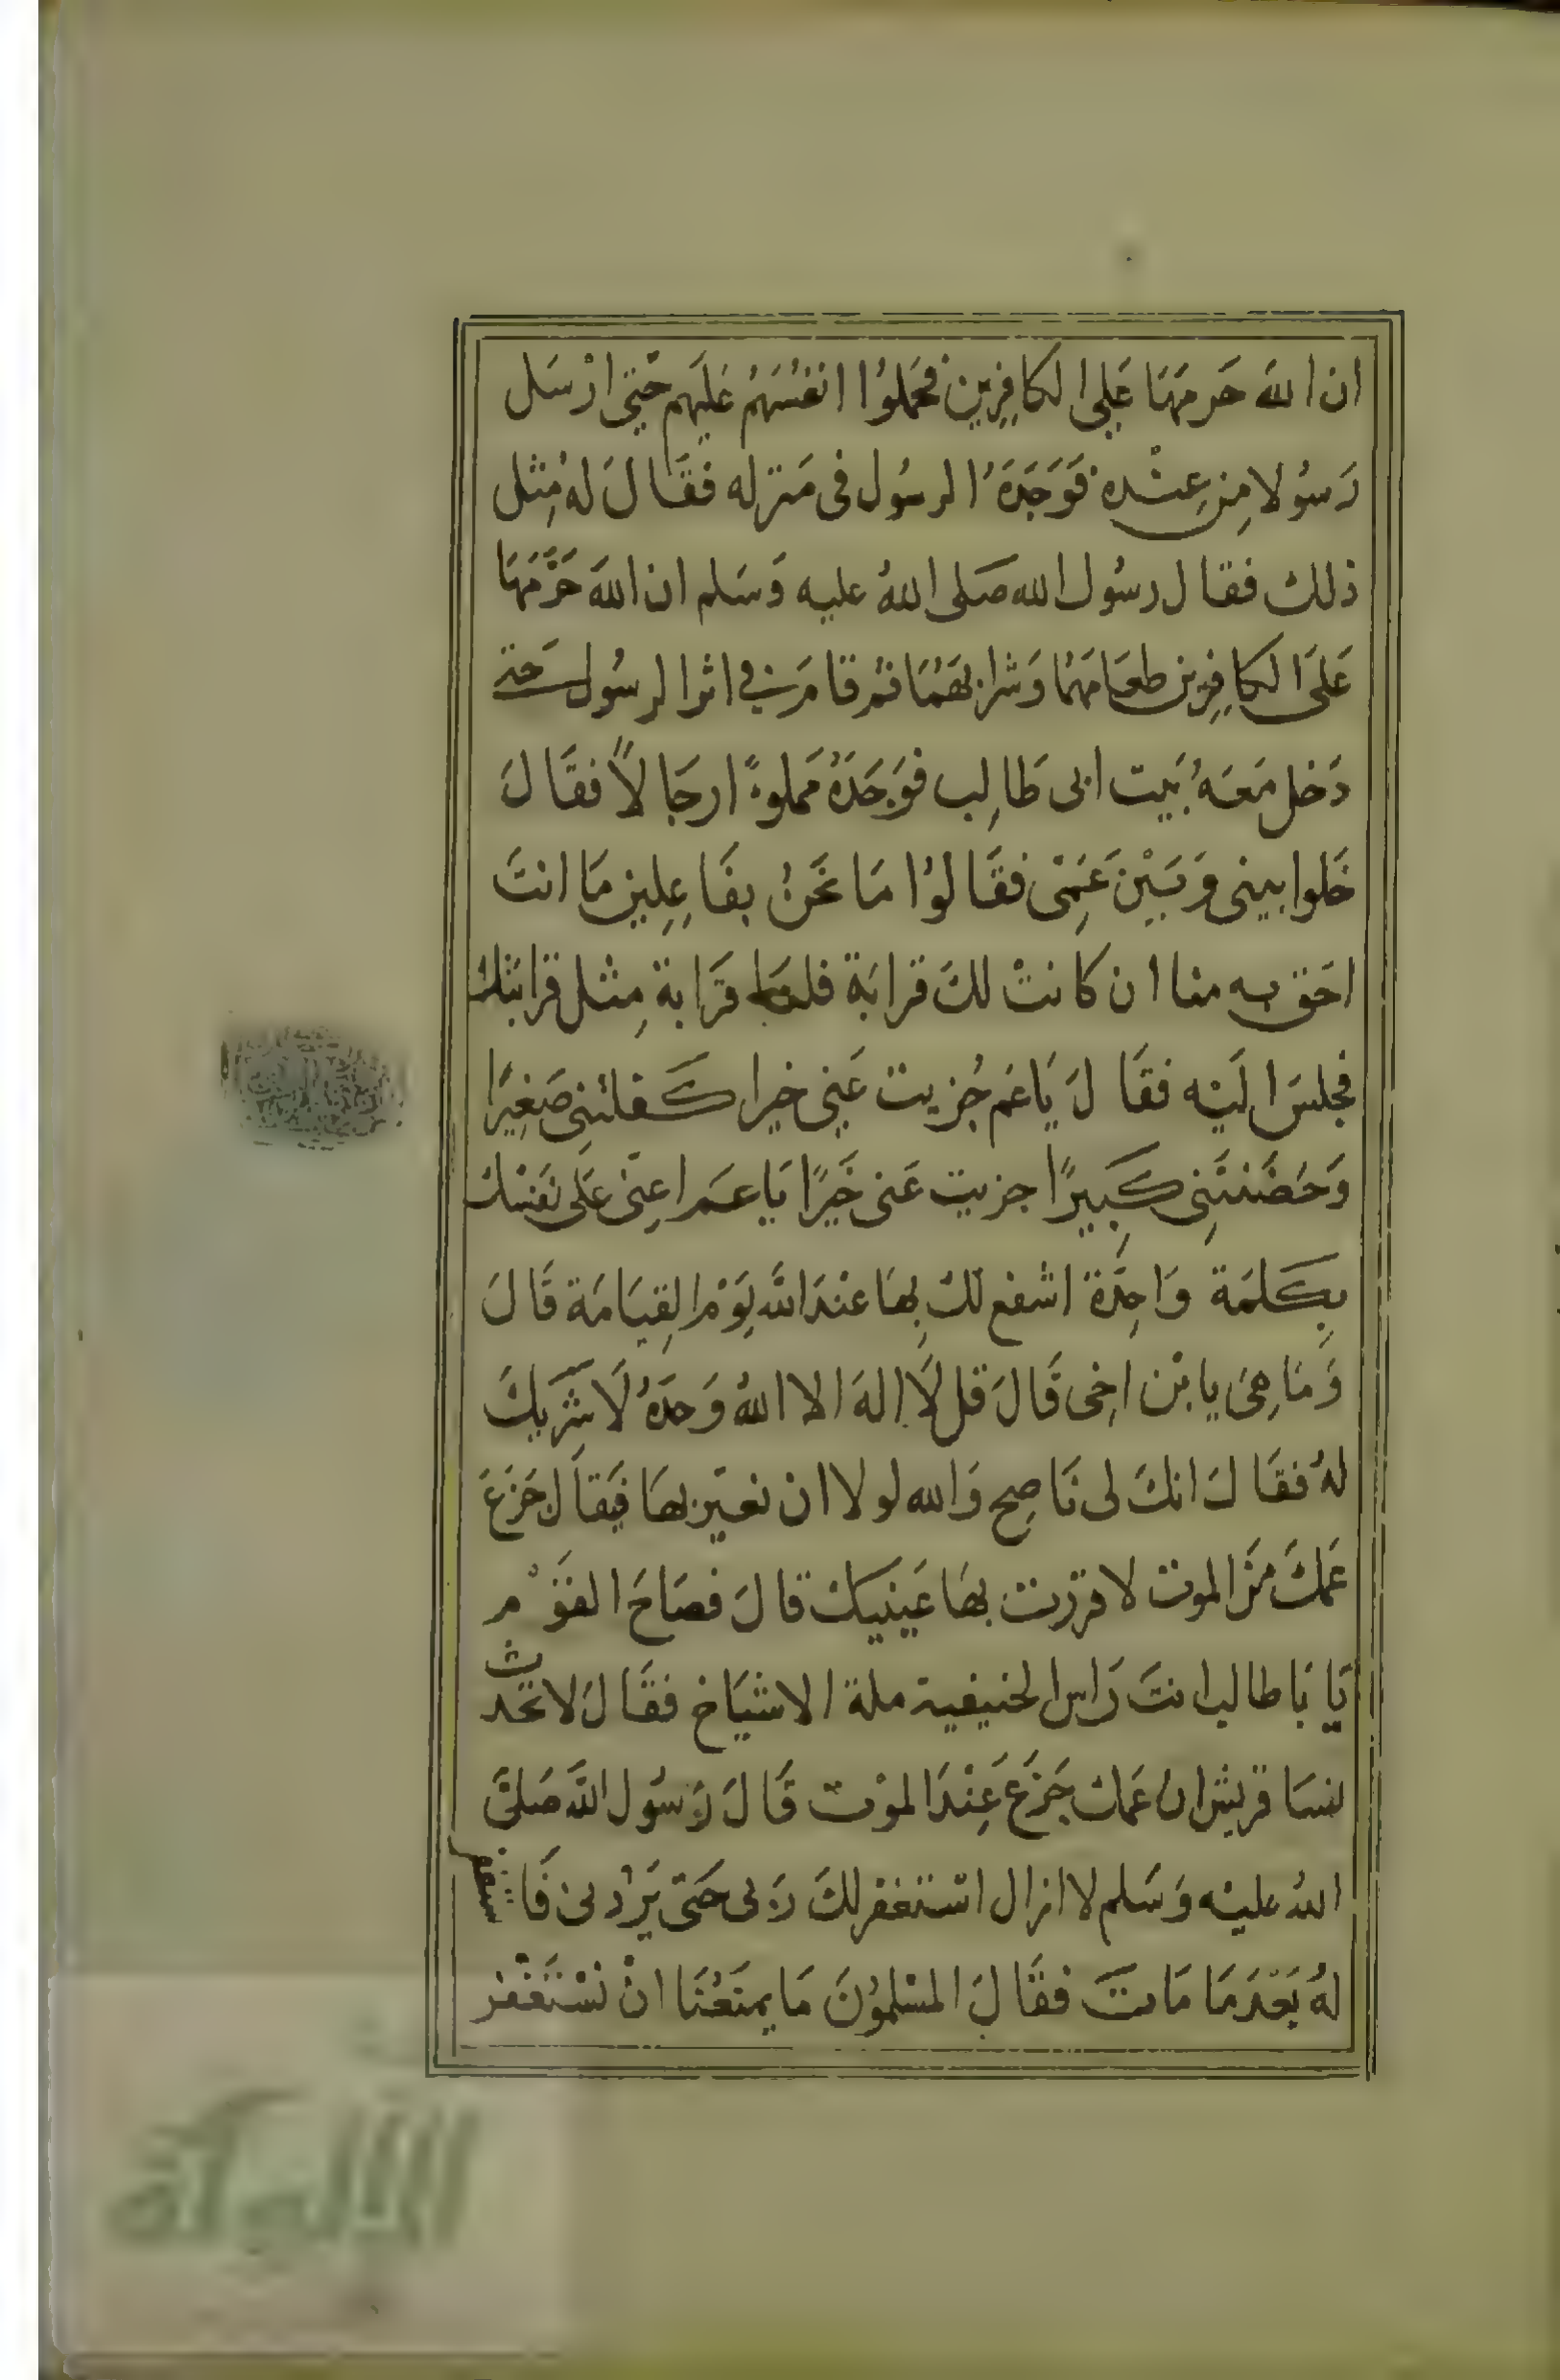 ان الله حَرمَهَا عَلى الكافِرِين فحَملوُا انفسَهُم عَليَهم حَتى ارْسَل
رَسوُلا مِن عِنْده فوَجَدَهُ الرسُول فى مَنزله فقَالَ لهُ مِثل
ذلك فقال رسُول الله صَلى اللهُ عليه وَسَلم ان اللهَ حَرَّمَهَا
عَلَى الكافِرِين طعَامَهَا وَشرابَهَا ثم قامَ فى اثر الرسُول حَتى
دَخل مَعَهُ بَيت ابى طَالِب فوَجَدَهُ مَملوءً ارجَالاً فقَالَ
خَلوا بينى وَبَيْنَ عَمِى فقَالوُا مَا نَحَنُ بفَاعِلِين مَا انتَ
احَق به منا ان كانتْ لكَ قرابَة فلنا قرَابة مِثل قرابَتك
فجلسَ اليْه فقَالَ يَا عَم جُزيت عَنِى خيرا كَفلتنِى صَغِيرًا
وَحَضَنتَنِى كَبِيرًا جزيت عَنى خَيرًا يَا عَم اعِنى عَلى نفَسْك
بِكَلمَة وَاحِدَة اشفع لكَ بِهَا عنْدَ الله يَوْم القِيَامَة قَالَ
وَمَا هِىَ يا ابْن اخِى قَالَ قل لَا الهَ الا اللهُ وَحدَهُ لَا شَرِيكَ
لهُ فقَالَ انكَ لى نَاصِح وَالله لولا ان نعيَر بهَا فيَقال جَزعَ
عَمكَ مَن الموت لا قررت بهَا عَينيك قالَ فصَاحَ القَوْم
يَا بَا طالب انتَ رَاس الحنيفية ملة الاشيَاخ فقَالَ لا تحَدث
نسَا قريش ان عَمك جَزعَ عِنْدَ الموْت قَالَ رَسُول الله صَلىَ
اللهُ عليْه وَسَلم لا ازال استغفر لكَ رَبى حَتى يَرُدنى فَاستغفر
لهُ بَعْدَمَا مَاتَ فقَالَ المسْلموُنَ مَا يمنَعُنَا انْ نسْتَغْفر
الألوكة